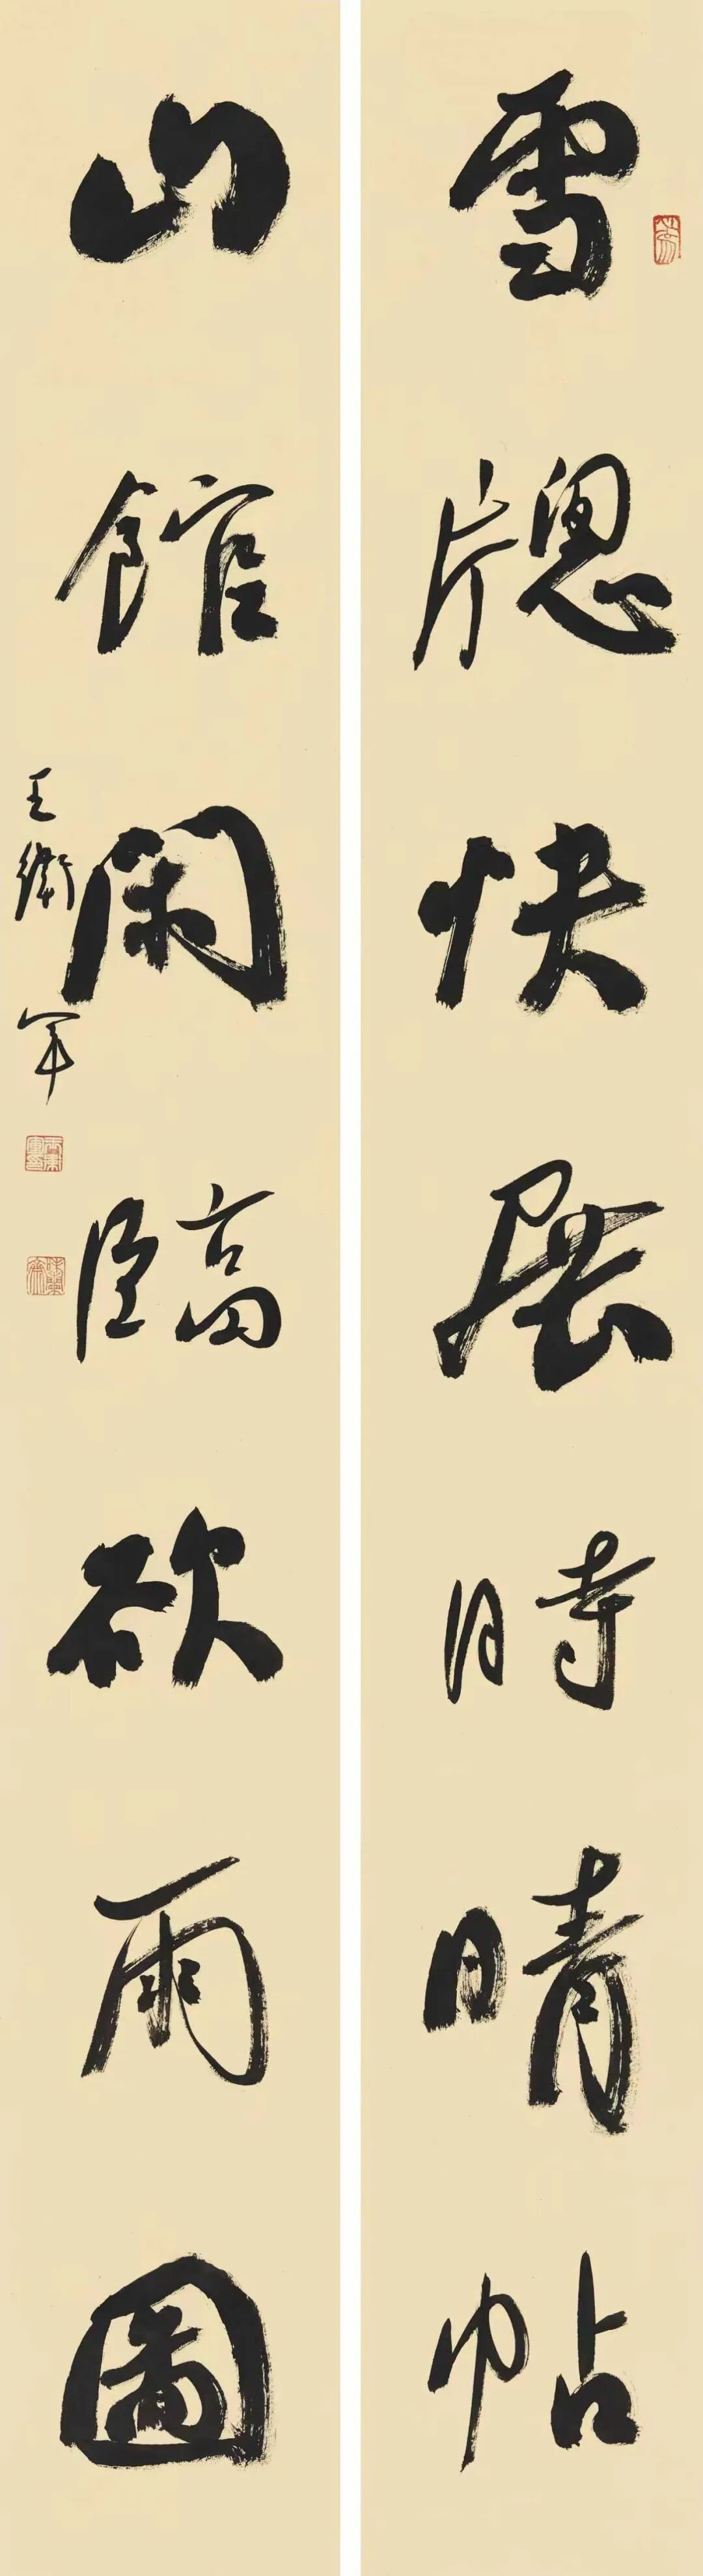 雪牕快展時晴帖
山館閑臨欲雨圖
王衛軍